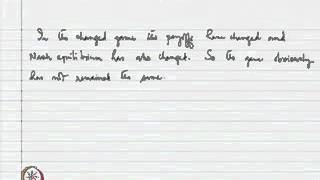 In the changed game the payoffs have changed and
Nash equilibrium has also changed. So the game obviously
has not remained the same.